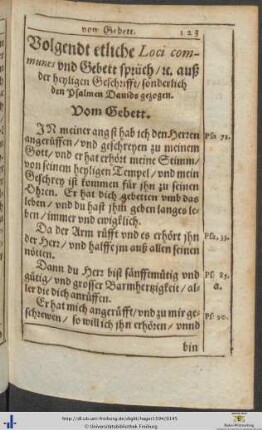 vom Gebett. 123
Volgendt etliche Loci com-
munes vnd Gebett sprüch/ ꝛc. auß
der heyligen Geschrifft/ sonderlich
den Psalmen Dauids gezogen.
Vom Gebett.
IN meiner angst hab ich den Herren
angerüffen/ vnd geschreyen zu meinem
Gott/ vnd er hat erhört meine Stimm/
von seinem heyligen Tempel/ vnd mein
Geschrey ist kommen für jhn zu seinen
Ohren. Er hat dich gebetten vmb das
leben/ vnd du hast jhm geben langes le-
ben/ immer vnd ewigklich.
Da der Arm rüfft vnd es erhört jhn
der Herr/ vnd halffe jm auß allen seinen
nötten.
Dann du Herr bist sänfftmütig vnd
gütig/ vnd grosser Barmhertzigkeit/ al-
ler die dich anrüffen.
Er hat mich angerüfft/ vnd zu mir ge-
schrewen/ so will ich jhn erhören/ vnnd
bin
Psa. 33.
Ps. 85.
a.
Ps. 90.
http://dl.ub.uni-freiburg.de/diglit/hager1594/0145
© Universitätsbibliothek Freiburg